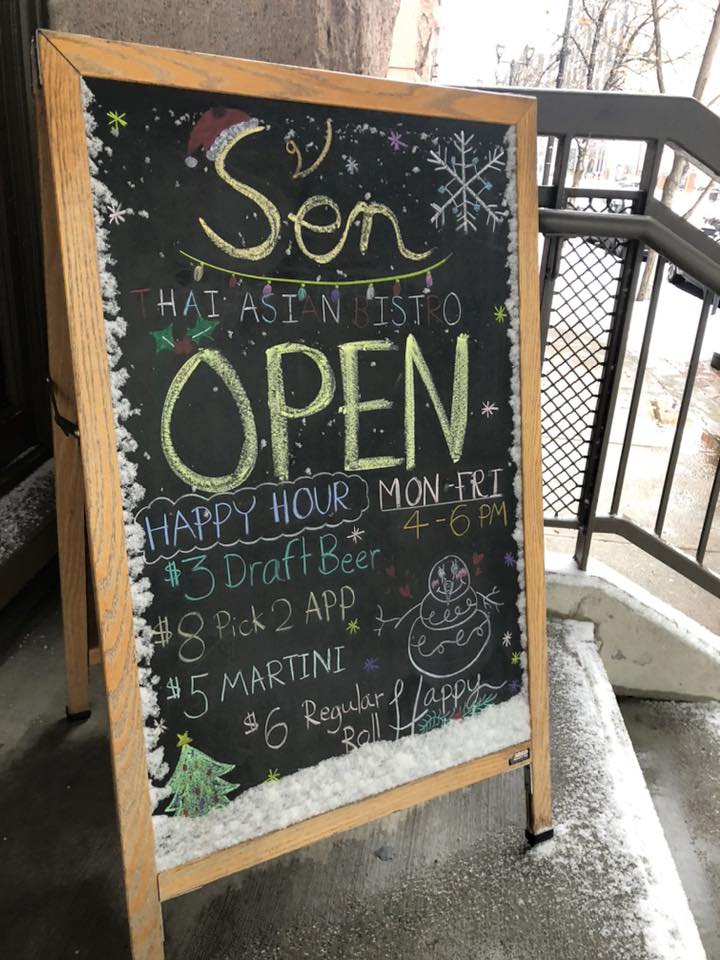 Sen
THAI ASIAN BISTRO
OPEN
HAPPY HOUR MON-FRI
4-6 PM
$3 Draft Beer
$8 Pick 2 APP
$5 MARTINI
$6 Regular
Roll
Happy